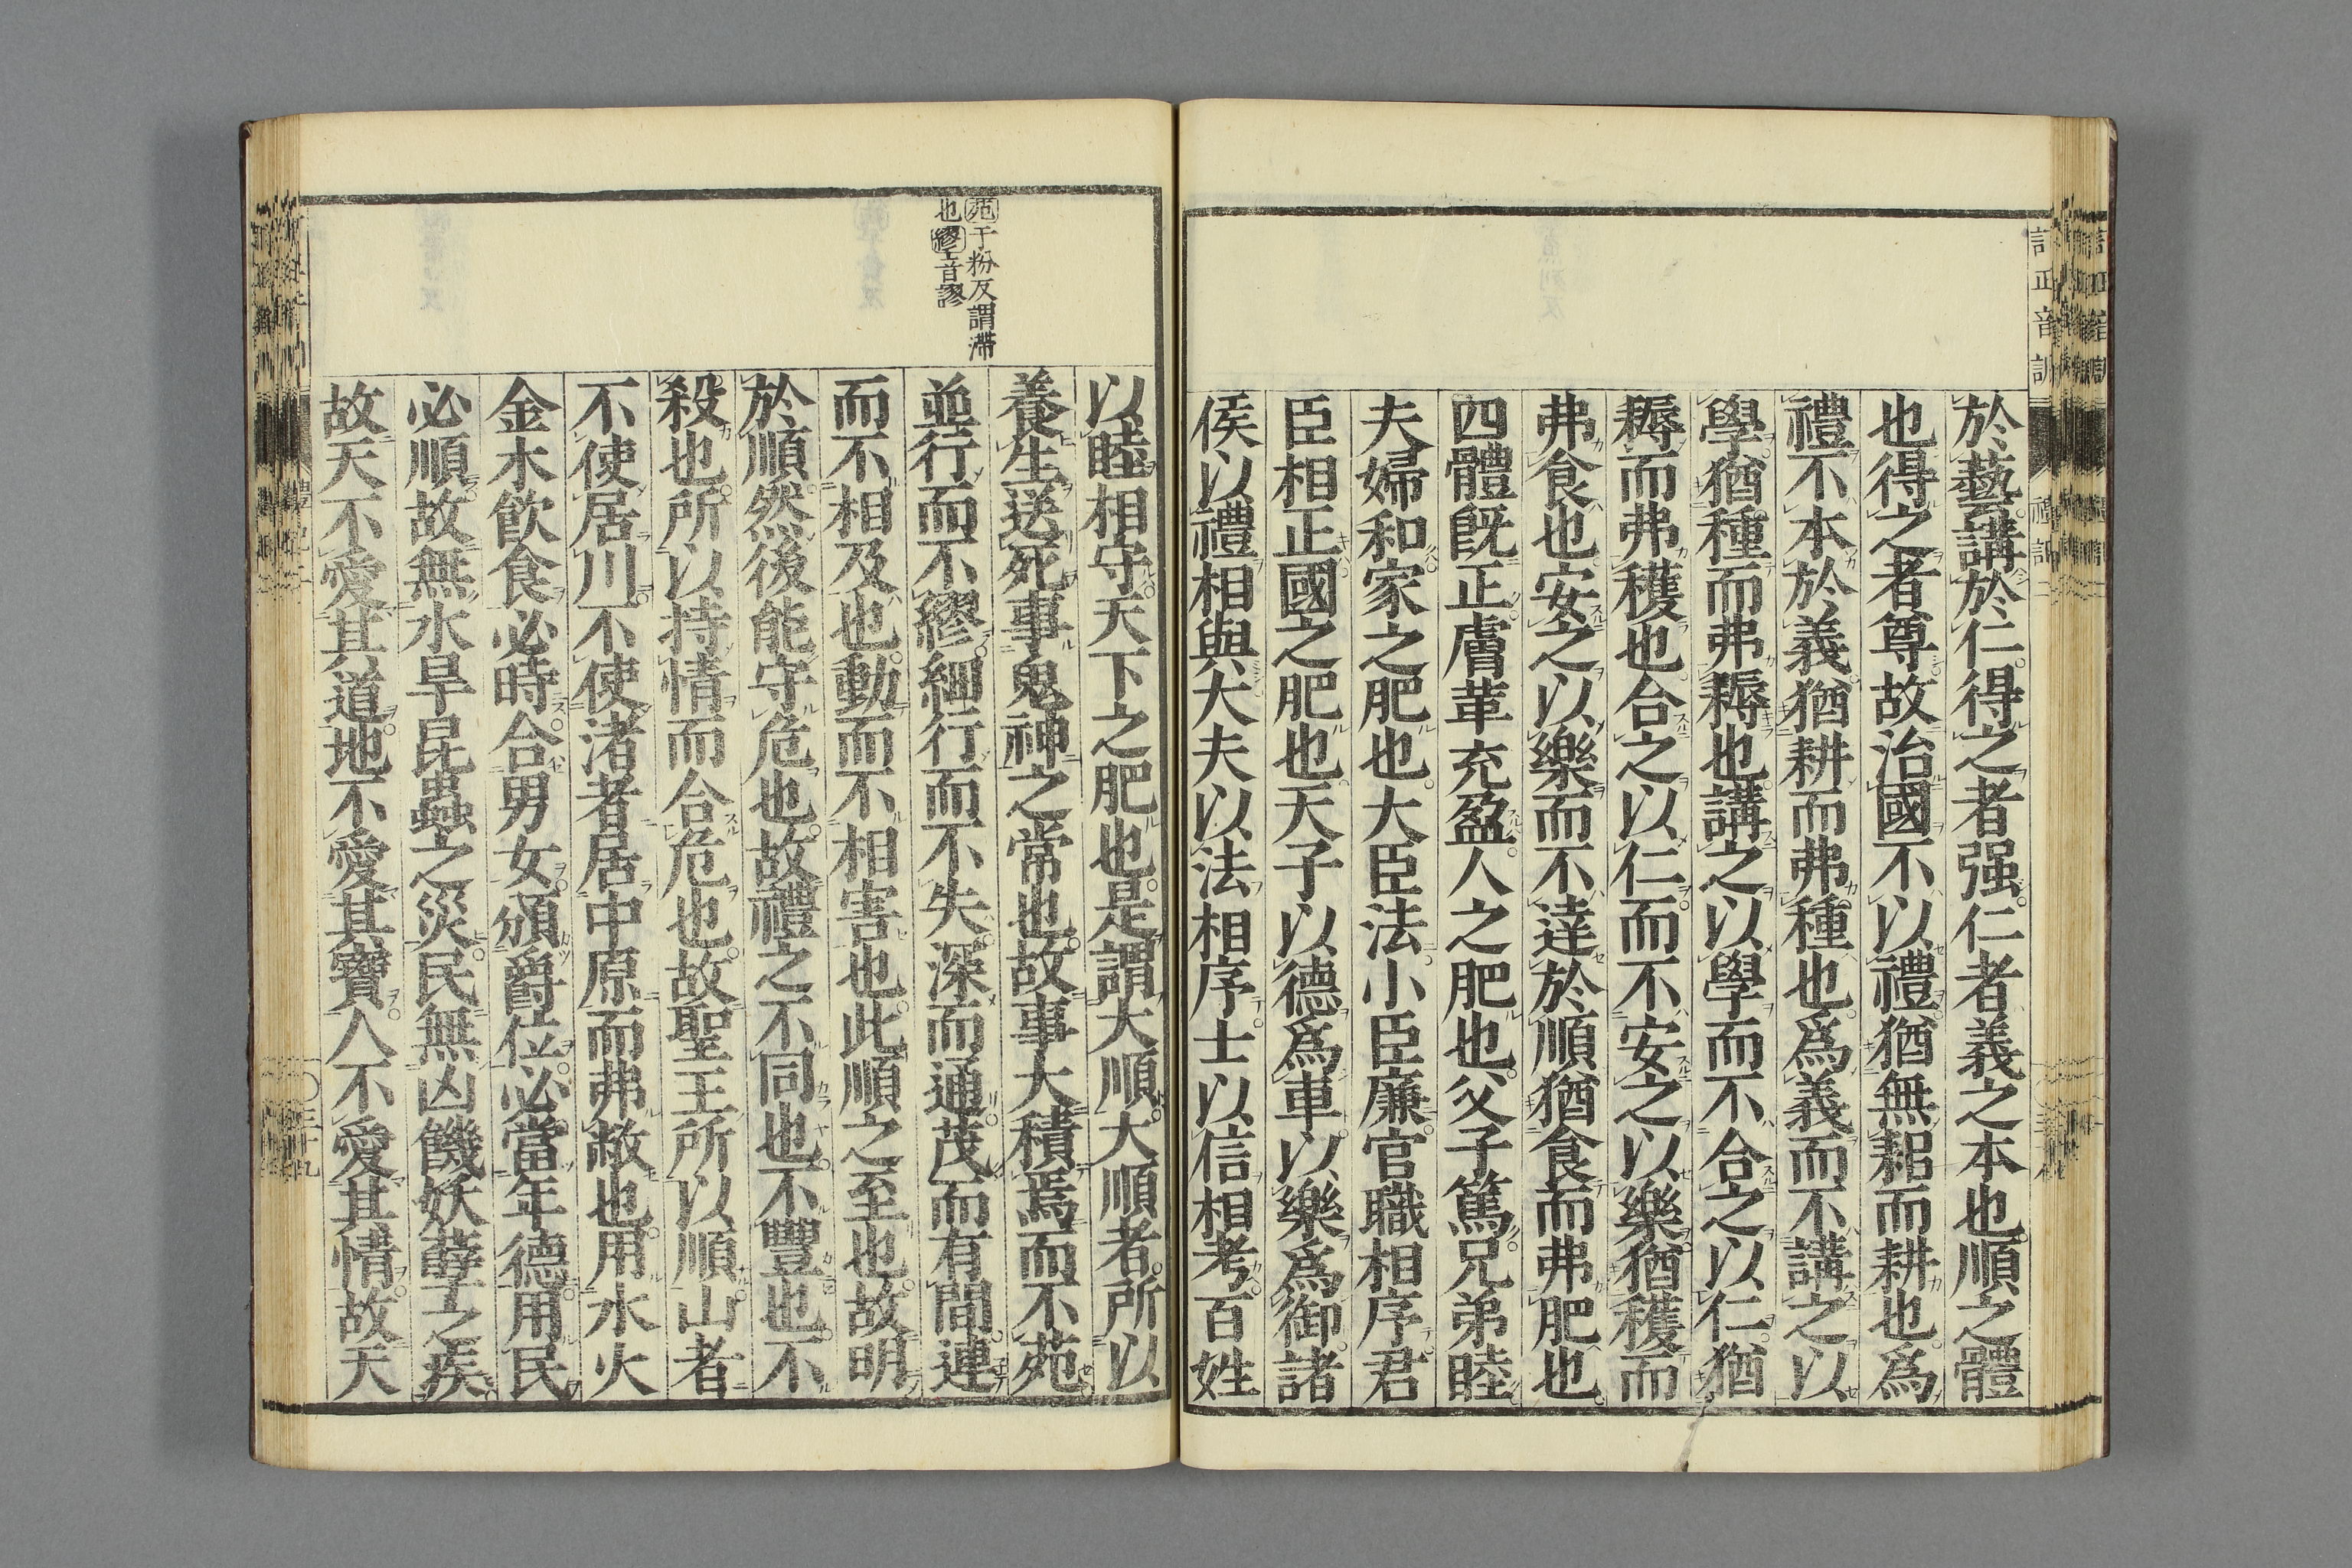 於藝講於仁得之者强仁者義之本也順之體
也得之者尊故治國不以禮猶無耜而耕也爲
禮不本於義猶耕而弗種也爲義而不講之以
學猶種而弗耨也講之以學而不合之以仁猶
耨而弗穫也合之以仁而不安之以樂猶穫而
弗食也安之以樂而不達於順猶食而弗肥也
四體既正膚革充盈人之肥也父子篤兄弟睦
夫婦和家之肥也大臣法小臣廉官職相序君
臣相正國之肥也天子以德爲車以樂爲御諸
侯以禮相與大夫以法相序士以信相考百姓
以睦相守天下之肥也是謂大順大順者所以
養生送死事鬼神之常也故事大積焉而不苑
並行而不繆細行而不失深而通茂而有間連
而不相及也動而不相害也此順之至也故明
於順然後能守危也故禮之不同也不豐也不
殺也所以持情而合危也故聖王所以順山者
不使居川不使渚者居中原而弗敝也用水火
金木飲食必時合男女頒爵位必當年德用民
必順故無水旱昆蟲之災民無凶饑妖孽之疾
故天不愛其道地不愛其寶人不愛其情故天
苑于粉反謂滯
也繆音謬